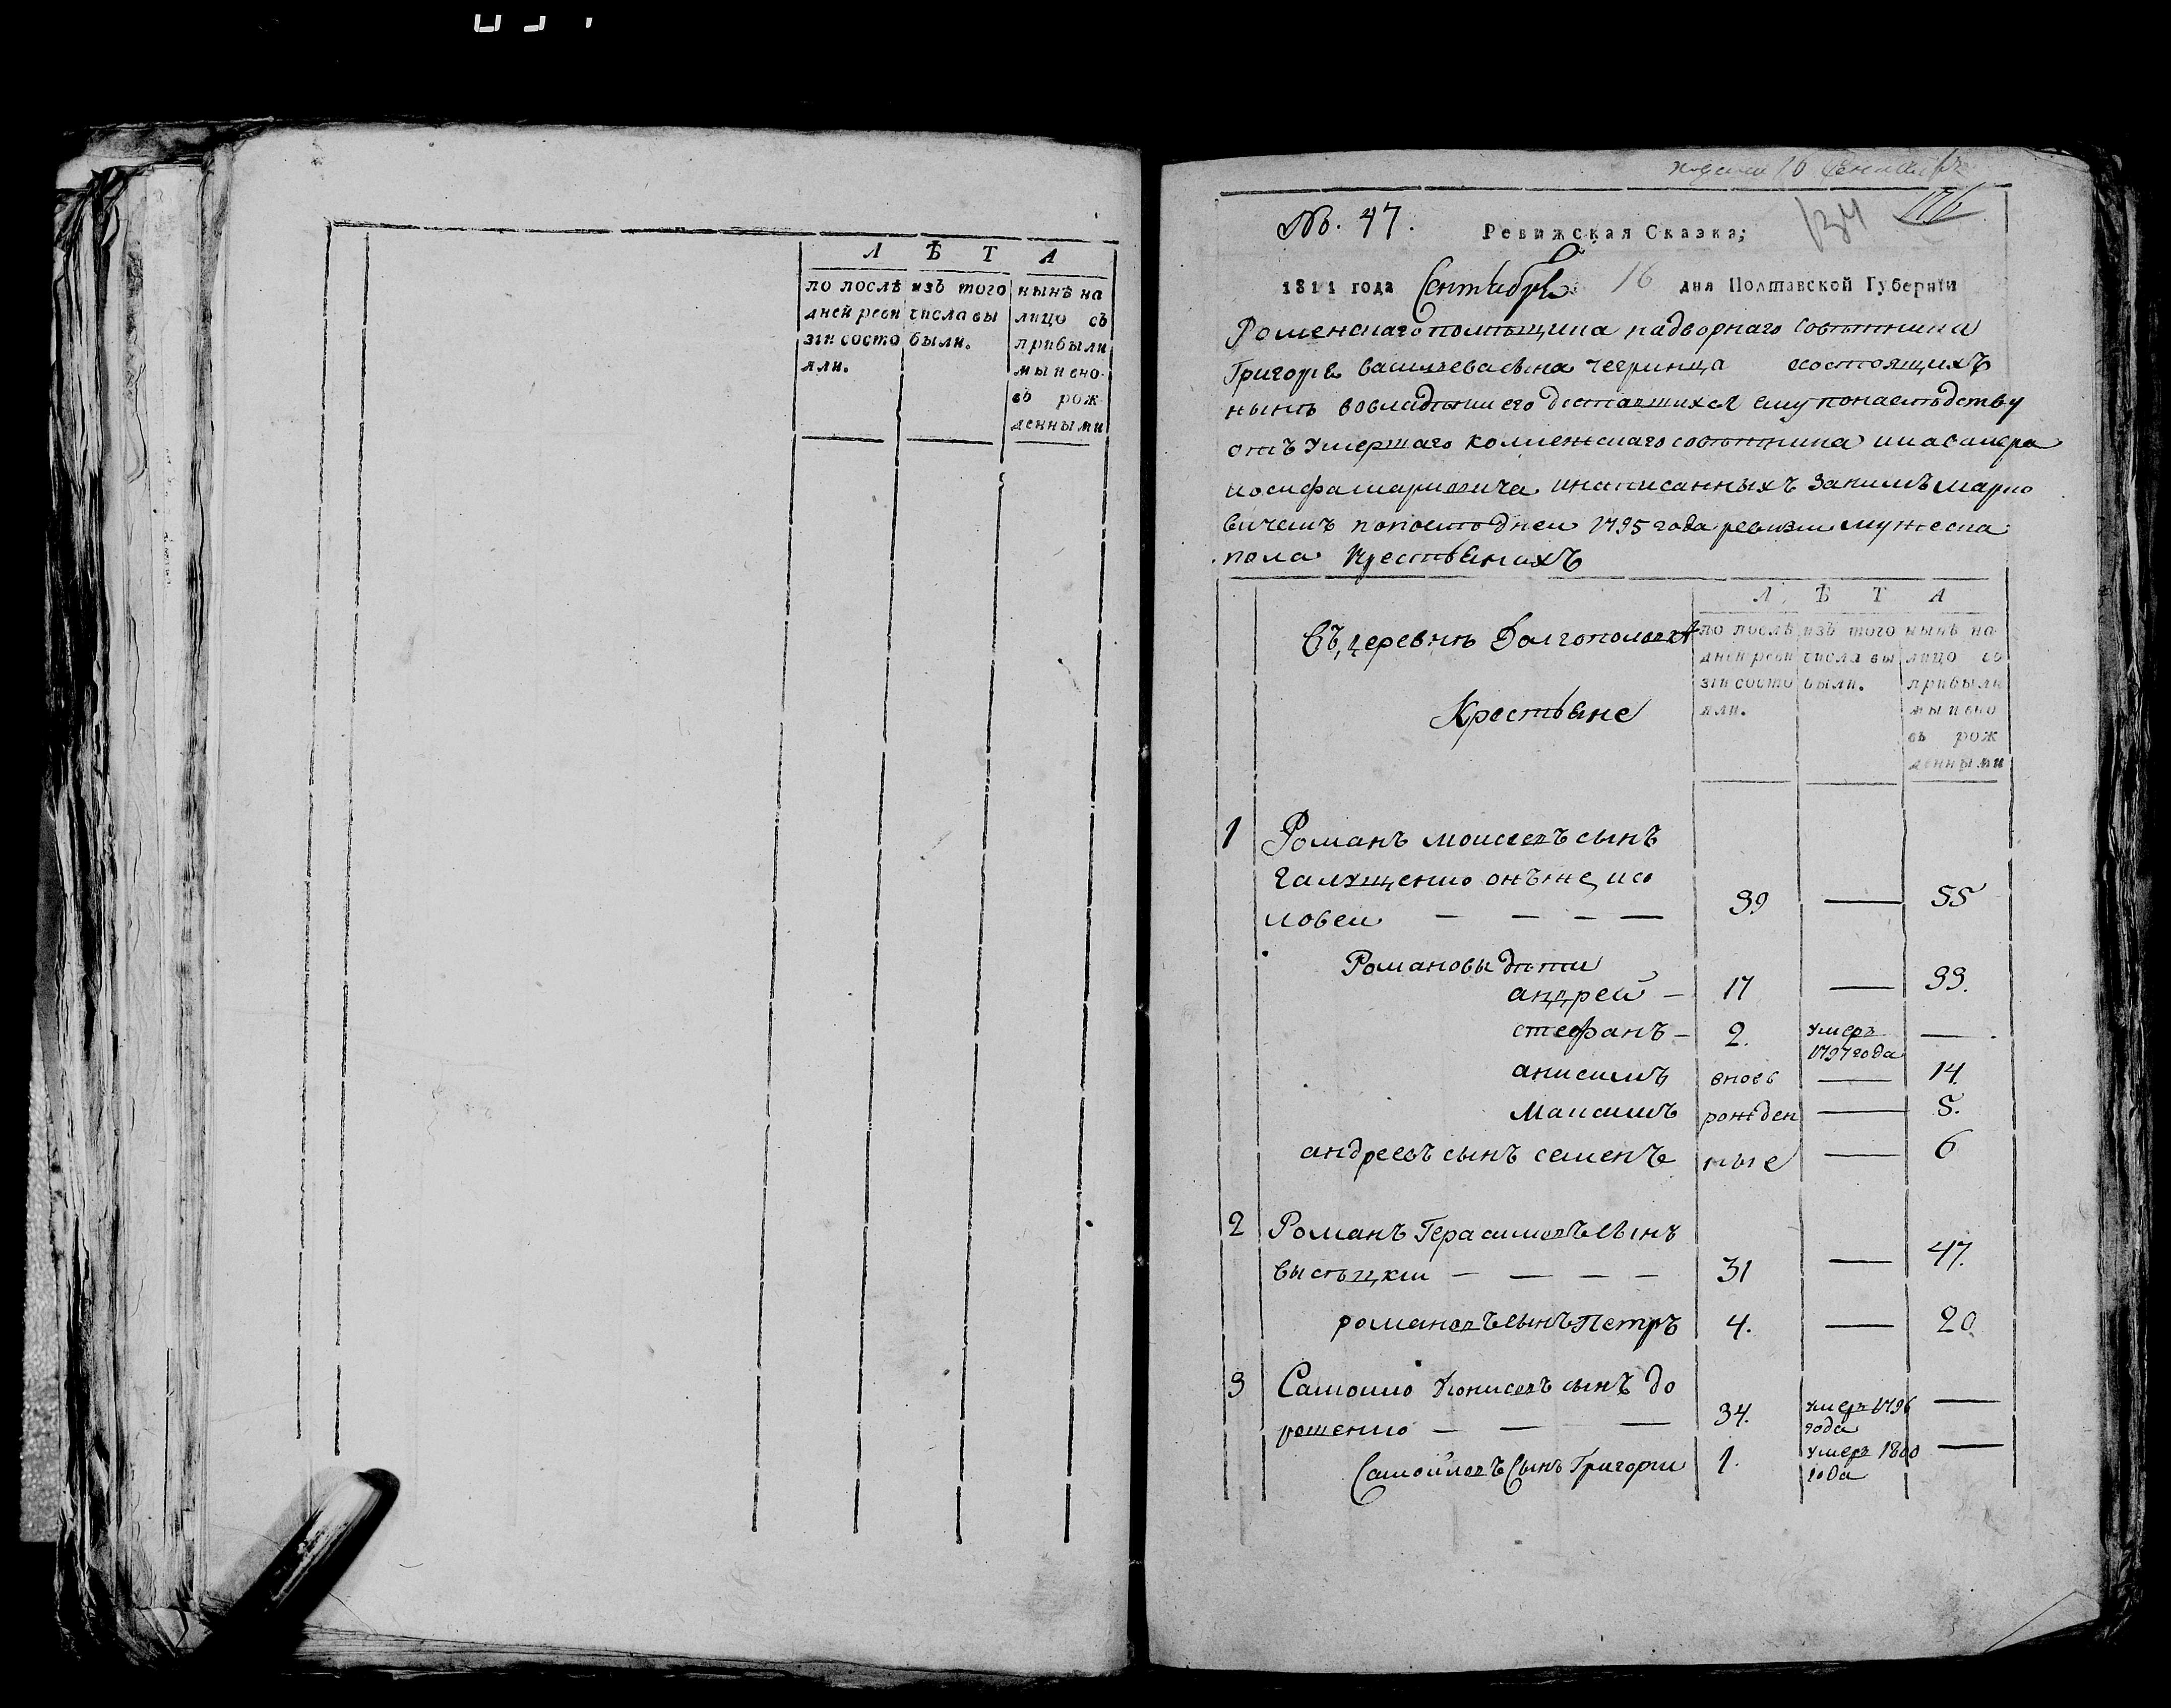 Л Ѣ Т А
по послѣ изъ того нынѣ на
дней реви числа вы лицо съ
зіи состо были. прибыли
яли. мы и вно-
въ рож-
денными
подана 16 сентября
№. 47. Ревижская Сказка; 134 176
1811 года Сентября 16 дня Полтавской Губерніи
Роменскаго помѣщика надворнаго совѣтника
Григорія васильева сына состоящихъ
нынѣ вовладѣніи его доставшихся ему понаслѣдству
отъ умершаго коллежскаго совѣтника и кавалера
иосифа марковича инаписанныхъ занимъ марко
вичемъ попослѣдней 1795 года ревизіи мужеска
пола крестьянахъ
Л Ѣ Т А
Въ деревнѣ Долгополовкѣ по послѣ изъ того нынѣ на
дней реви числа вы лицо съ
зіи состо были. прибыли
Крестьяне яли. мы и вно
въ рож
денными
1 Романъ моисеевъ сынъ
галущенко онъже исо
ловей — — — — 39 — 55
Романовы дѣти
андрей — 17 — 33.
стефанъ — 2. умеръ —
1797 года
анисимъ вновь — 14.
Максимъ рожден — 5.
андреевъ сынъ семенъ ные — 6
2 Романъ Герасимовъ сынъ
высѣцкій — — — — 31 — 47.
романовъ сынъ Петръ 4. — 20.
3 Самойло денисовъ сынъ до
рошенко — — — 34. умеръ 1796 —
года
Самойловъ Сынъ Григорій 1. умеръ 1800 —
года